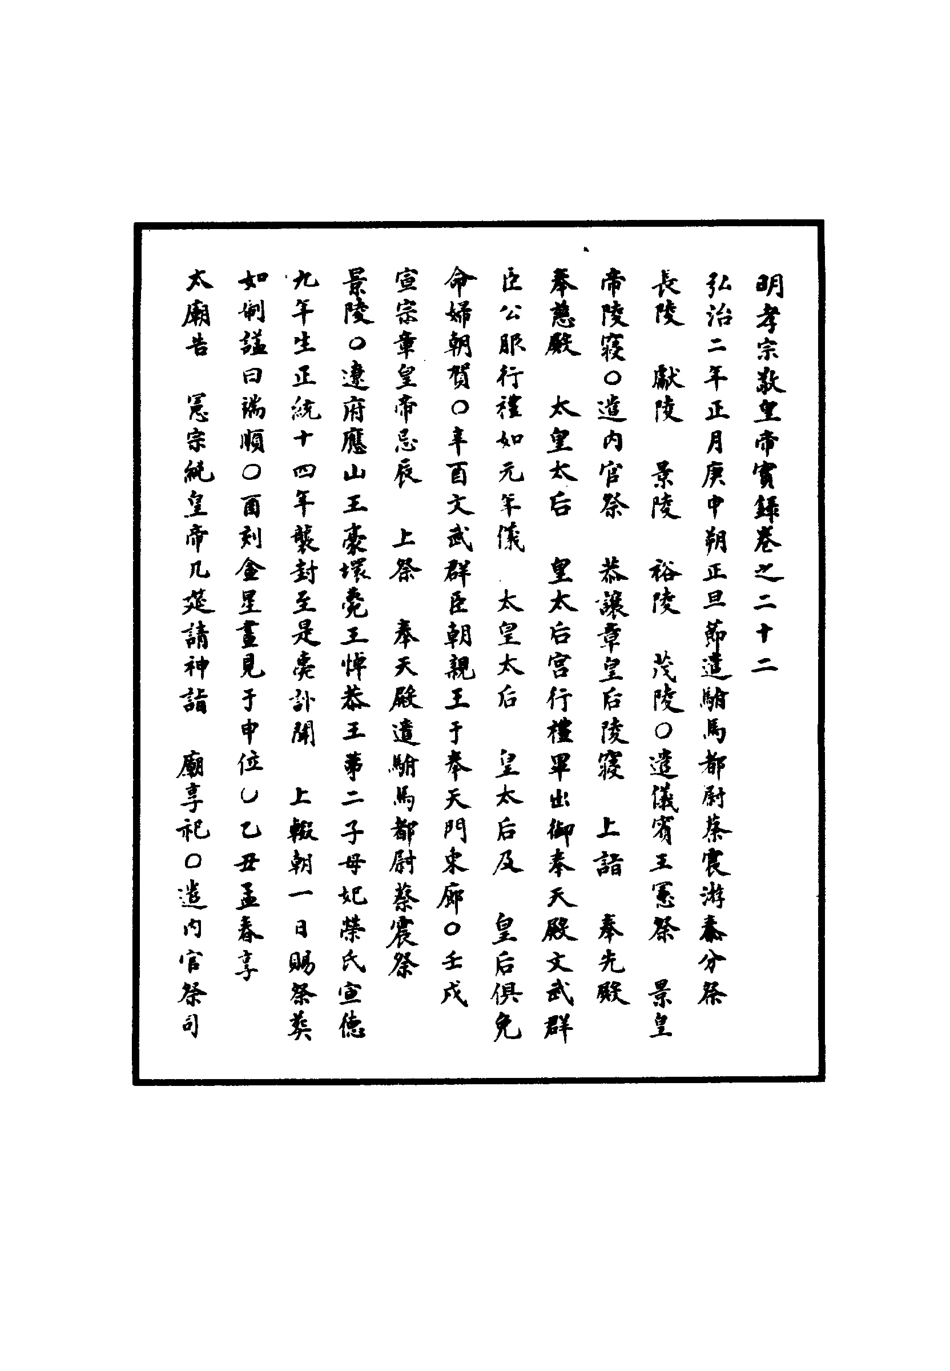 明孝宗敬皇帝實錄卷之二十二
弘治二年正月庚申朔正旦節遣駙馬都尉蔡震游泰分祭
長陵　獻陵　景陵　裕陵　茂陵○遣儀賓王憲祭　景皇
帝陵寢○遣內官祭　恭讓章皇后陵寢　上詣　奉先殿
奉慈殿　太皇太后　皇太后宮行禮畢出御奉天殿文武群
臣公服行禮如元年儀　太皇太后　皇太后及　皇后俱免
命婦朝賀○辛酉文武群臣朝親王于奉天門東廊○壬戌
宣宗章皇帝忌辰　上祭　奉天殿遣駙馬都尉蔡震祭
景陵○遼府應山王豪壞薨王悼恭王第二子母妃榮氏宣德
九年生正統十四年襲封至是薨訃聞　上輟朝一日賜祭葬
如制諡曰端順○酉刻金星晝見于申位○乙丑孟春享
太廟告　憲宗純皇帝几筵請神詣　廟享祀○遣內官祭司